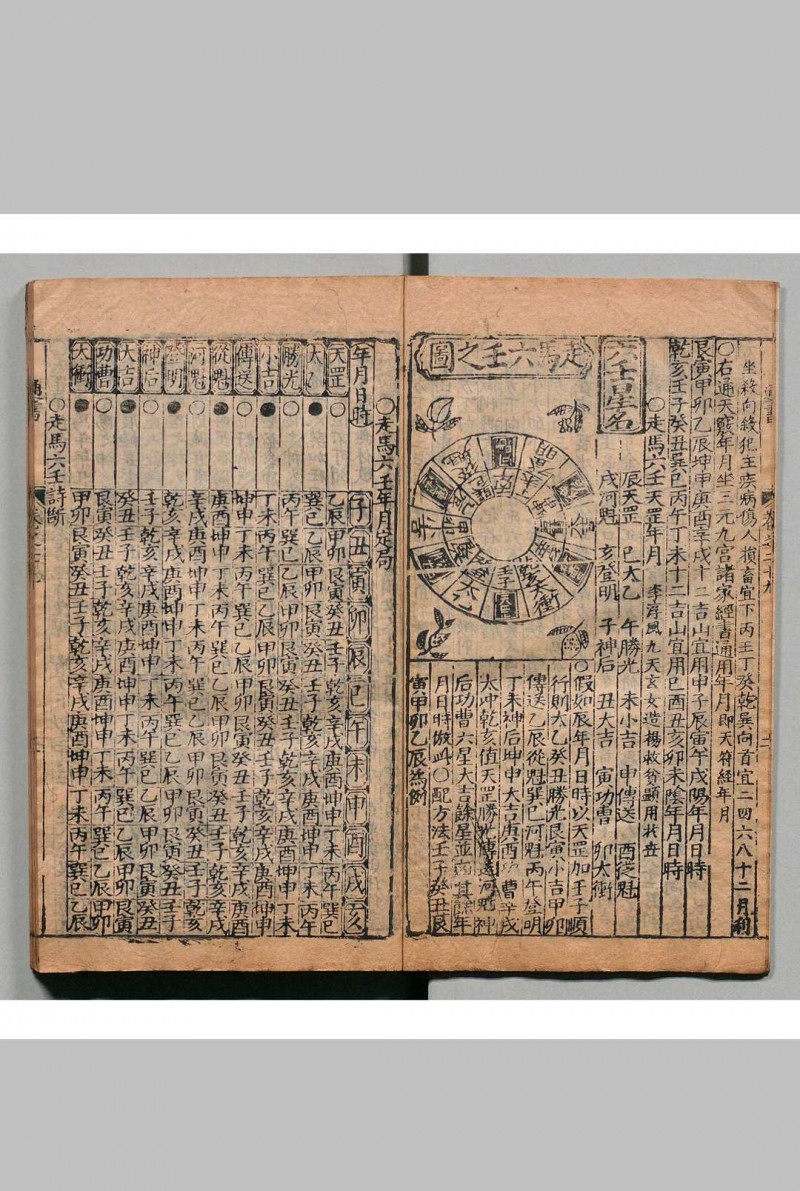 坐殺向殺犯主疾病傷人損畜宜下丙壬丁癸乾巽向首宜二四六八十二月利
○右通天竅年月坐三元九宮諸家經書通用年月即天符經年月
艮寅甲卯乙辰坤申庚酉辛戌十二吉山宜用申子辰寅午戌陽年月日時
乾亥壬子癸丑巽巳丙午丁未十二吉山宜用巳酉丑亥卯未陰年月日時
○走馬六壬天罡年月 李淳風九天玄女造楊救貧顯用於世
六壬星名
辰天罡 巳太乙 午勝光 未小吉 申傳送 酉從魁
戌河魁 亥登明 子神后 丑大吉 寅功曹 卯太衝
走馬六壬之圖
○假如辰年月日時以天罡加壬子順
行則太乙癸丑勝光艮寅小吉甲卯
傳送乙辰從魁巽巳河魁丙午登明
丁未神后坤申大吉庚酉功曹辛戌
太冲乾亥值天罡勝光傳送河魁神
后功曹六星大吉餘星並凶其餘年
月日時倣此○配方法壬子癸丑艮
寅甲卯乙辰為例
○走馬六壬年月定局
年月日時 子丑寅卯辰巳午未申酉戌亥
天罡○乙辰甲卯艮寅癸丑壬子乾亥辛戌庚酉坤申丁未丙午巽巳
太乙●巽巳乙辰甲卯艮寅癸丑壬子乾亥辛戌庚酉坤申丁未丙午
勝光○丙午巽巳乙辰甲卯艮寅癸丑壬子乾亥辛戌庚酉坤申丁未
小吉●丁未丙午巽巳乙辰甲卯艮寅癸丑壬子乾亥辛戌庚酉坤申
傳送○坤申丁未丙午巽巳乙辰甲卯艮寅癸丑壬子乾亥辛戌庚酉
從魁●庚酉坤申丁未丙午巽巳乙辰甲卯艮寅癸丑壬子乾亥辛戌
河魁○辛戌庚酉坤申丁未丙午巽巳乙辰甲卯艮寅癸丑壬子乾亥
登明●乾亥辛戌庚酉坤申丁未丙午巽巳乙辰甲卯艮寅癸丑壬子
神后○壬子乾亥辛戌庚酉坤申丁未丙午巽巳乙辰甲卯艮寅癸丑
大吉●癸丑壬子乾亥辛戌庚酉坤申丁未丙午巽巳乙辰甲卯艮寅
功曹○艮寅癸丑壬子乾亥辛戌庚酉坤申丁未丙午巽巳乙辰甲卯
太衝●甲卯艮寅癸丑壬子乾亥辛戌庚酉坤申丁未丙午巽巳乙辰
○走馬六壬詩斷
通書